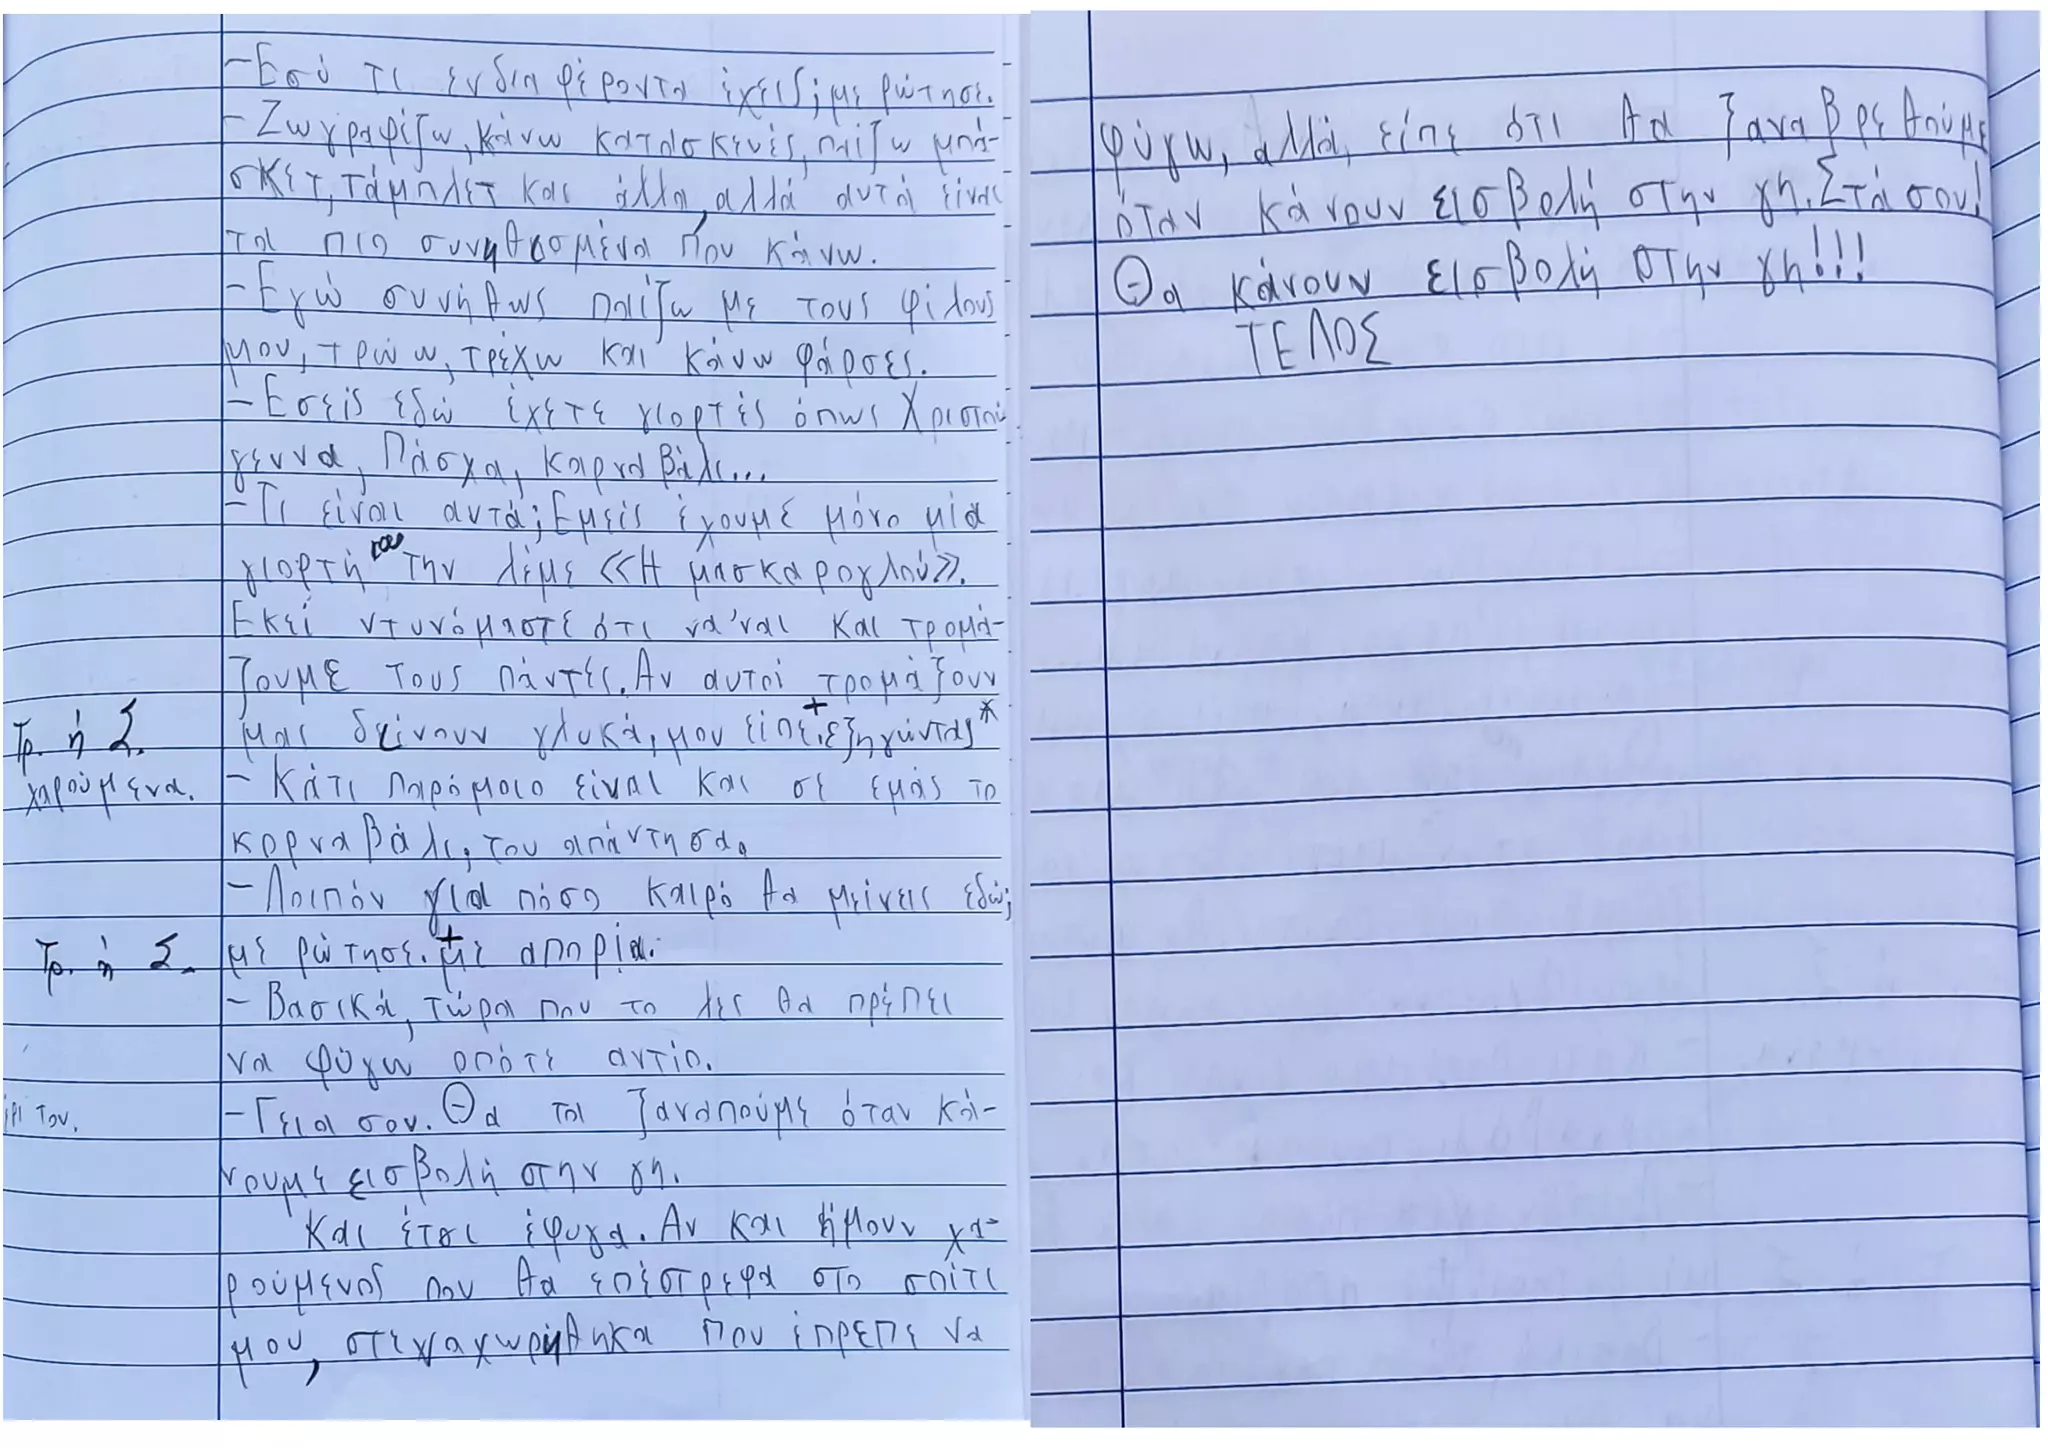 -Εσύ τι ενδιαφέροντα έχεις; με ρώτησε.
-Ζωγραφίζω, κάνω κατασκευές, παίζω μπά-
σκετ, τάμπλετ και άλλα, αλλά αυτά είναι
τα πιο συνηθισμένα που κάνω.
-Εγώ συνήθως παίζω με τους φίλους
μου, τρώω, τρέχω και κάνω φάρσες.
-Εσείς εδώ έχετε γιορτές όπως Χριστού
γεννα, Πάσχα, καρναβάλι...
-Τι είναι αυτά; Εμείς έχουμε μόνο μία
γιορτή και την λέμε «Η μασκαρογλού».
Εκεί ντυνόμαστε ότι να 'ναι και τρομά-
ζουμε τους πάντες. Αν αυτοί τρομάξουν
μας δείνουν γλυκά, μου είπε + εξηγώντας *
Τρ. ή Σ.
χαρούμενα.
- Κάτι παρόμοιο είναι και σε εμάς το
καρναβάλι, του απάντησα.
- Λοιπόν για πόσο καιρό θα μείνεις εδώ;
Τρ. ή Σ.
με ρώτησε. + με απορία.
- Βασικά, τώρα που το λες θα πρέπει
να φύγω οπότε αντίο.
του.
-Γεια σου. Θα τα ξαναπούμε όταν κά-
νουμε εισβολή στην γη.
Και έτσι έφυγα. Αν και ήμουν χα-
ρούμενος που θα επέστρεφα στο σπίτι
μου, στεναχωρήθηκα που έπρεπε να
φύγω, αλλά, είπε ότι θα ξαναβρεθούμε
όταν κάνουν εισβολή στην γη. Στάσου!
Θα κάνουν εισβολή στην γη!!!
ΤΕΛΟΣ